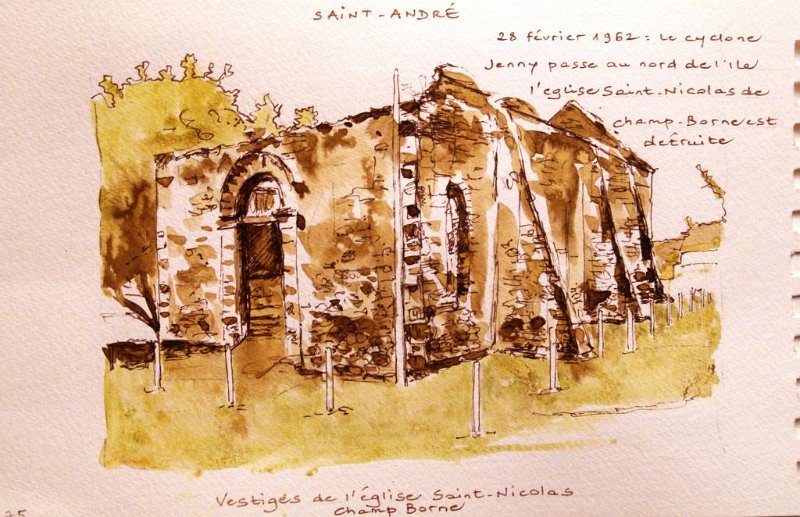 SAINT-ANDRÉ
28 février 1962: Le cyclone
Jenny passe au nord de l'île
l'église Saint-Nicolas de
champ-Borne est
détruite
Vestiges de l'église Saint-Nicolas
champ Borne
75